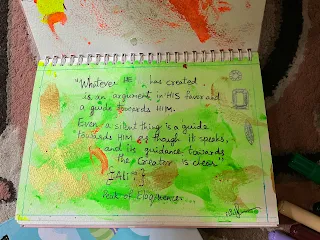 "Whatever HE has created
is an argument in HIS favor and
a guide towards HIM.
Even a silent thing is a guide
towards HIM as though it speaks,
and its guidance towards
the Creator is clear."
Peak of Eloquence...